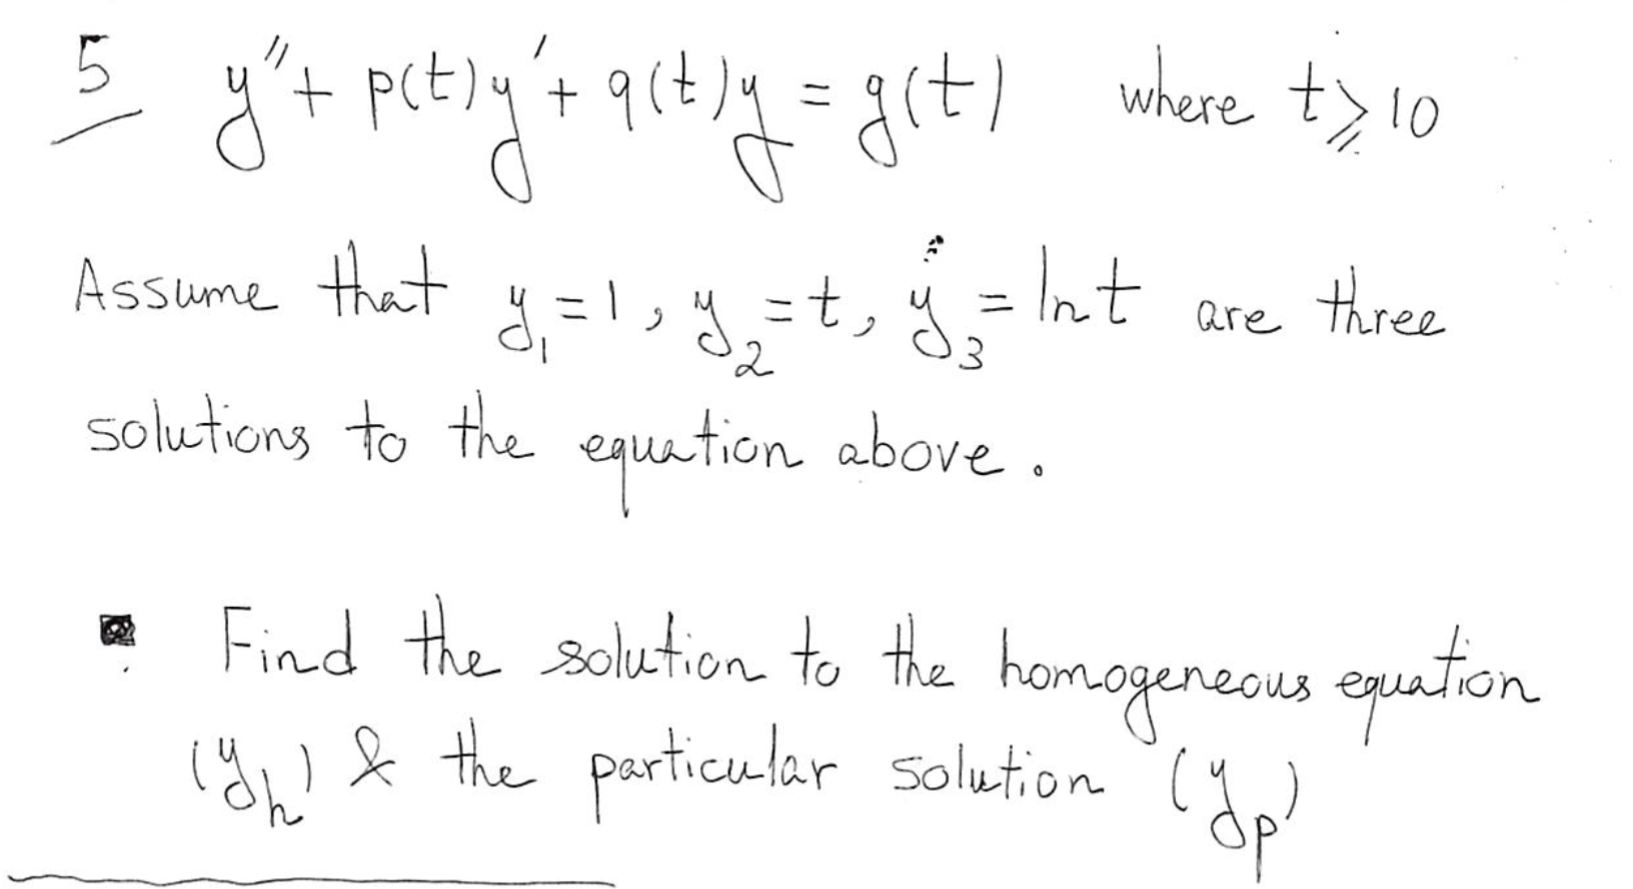 5 y'' + p(t)y' + q(t)y = g(t) where t ⩾ 10
Assume that y₁ = 1, y₂ = t, y₃ = ln t are three
solutions to the equation above.
Find the solution to the homogeneous equation
(y_h) & the particular solution (y_p)